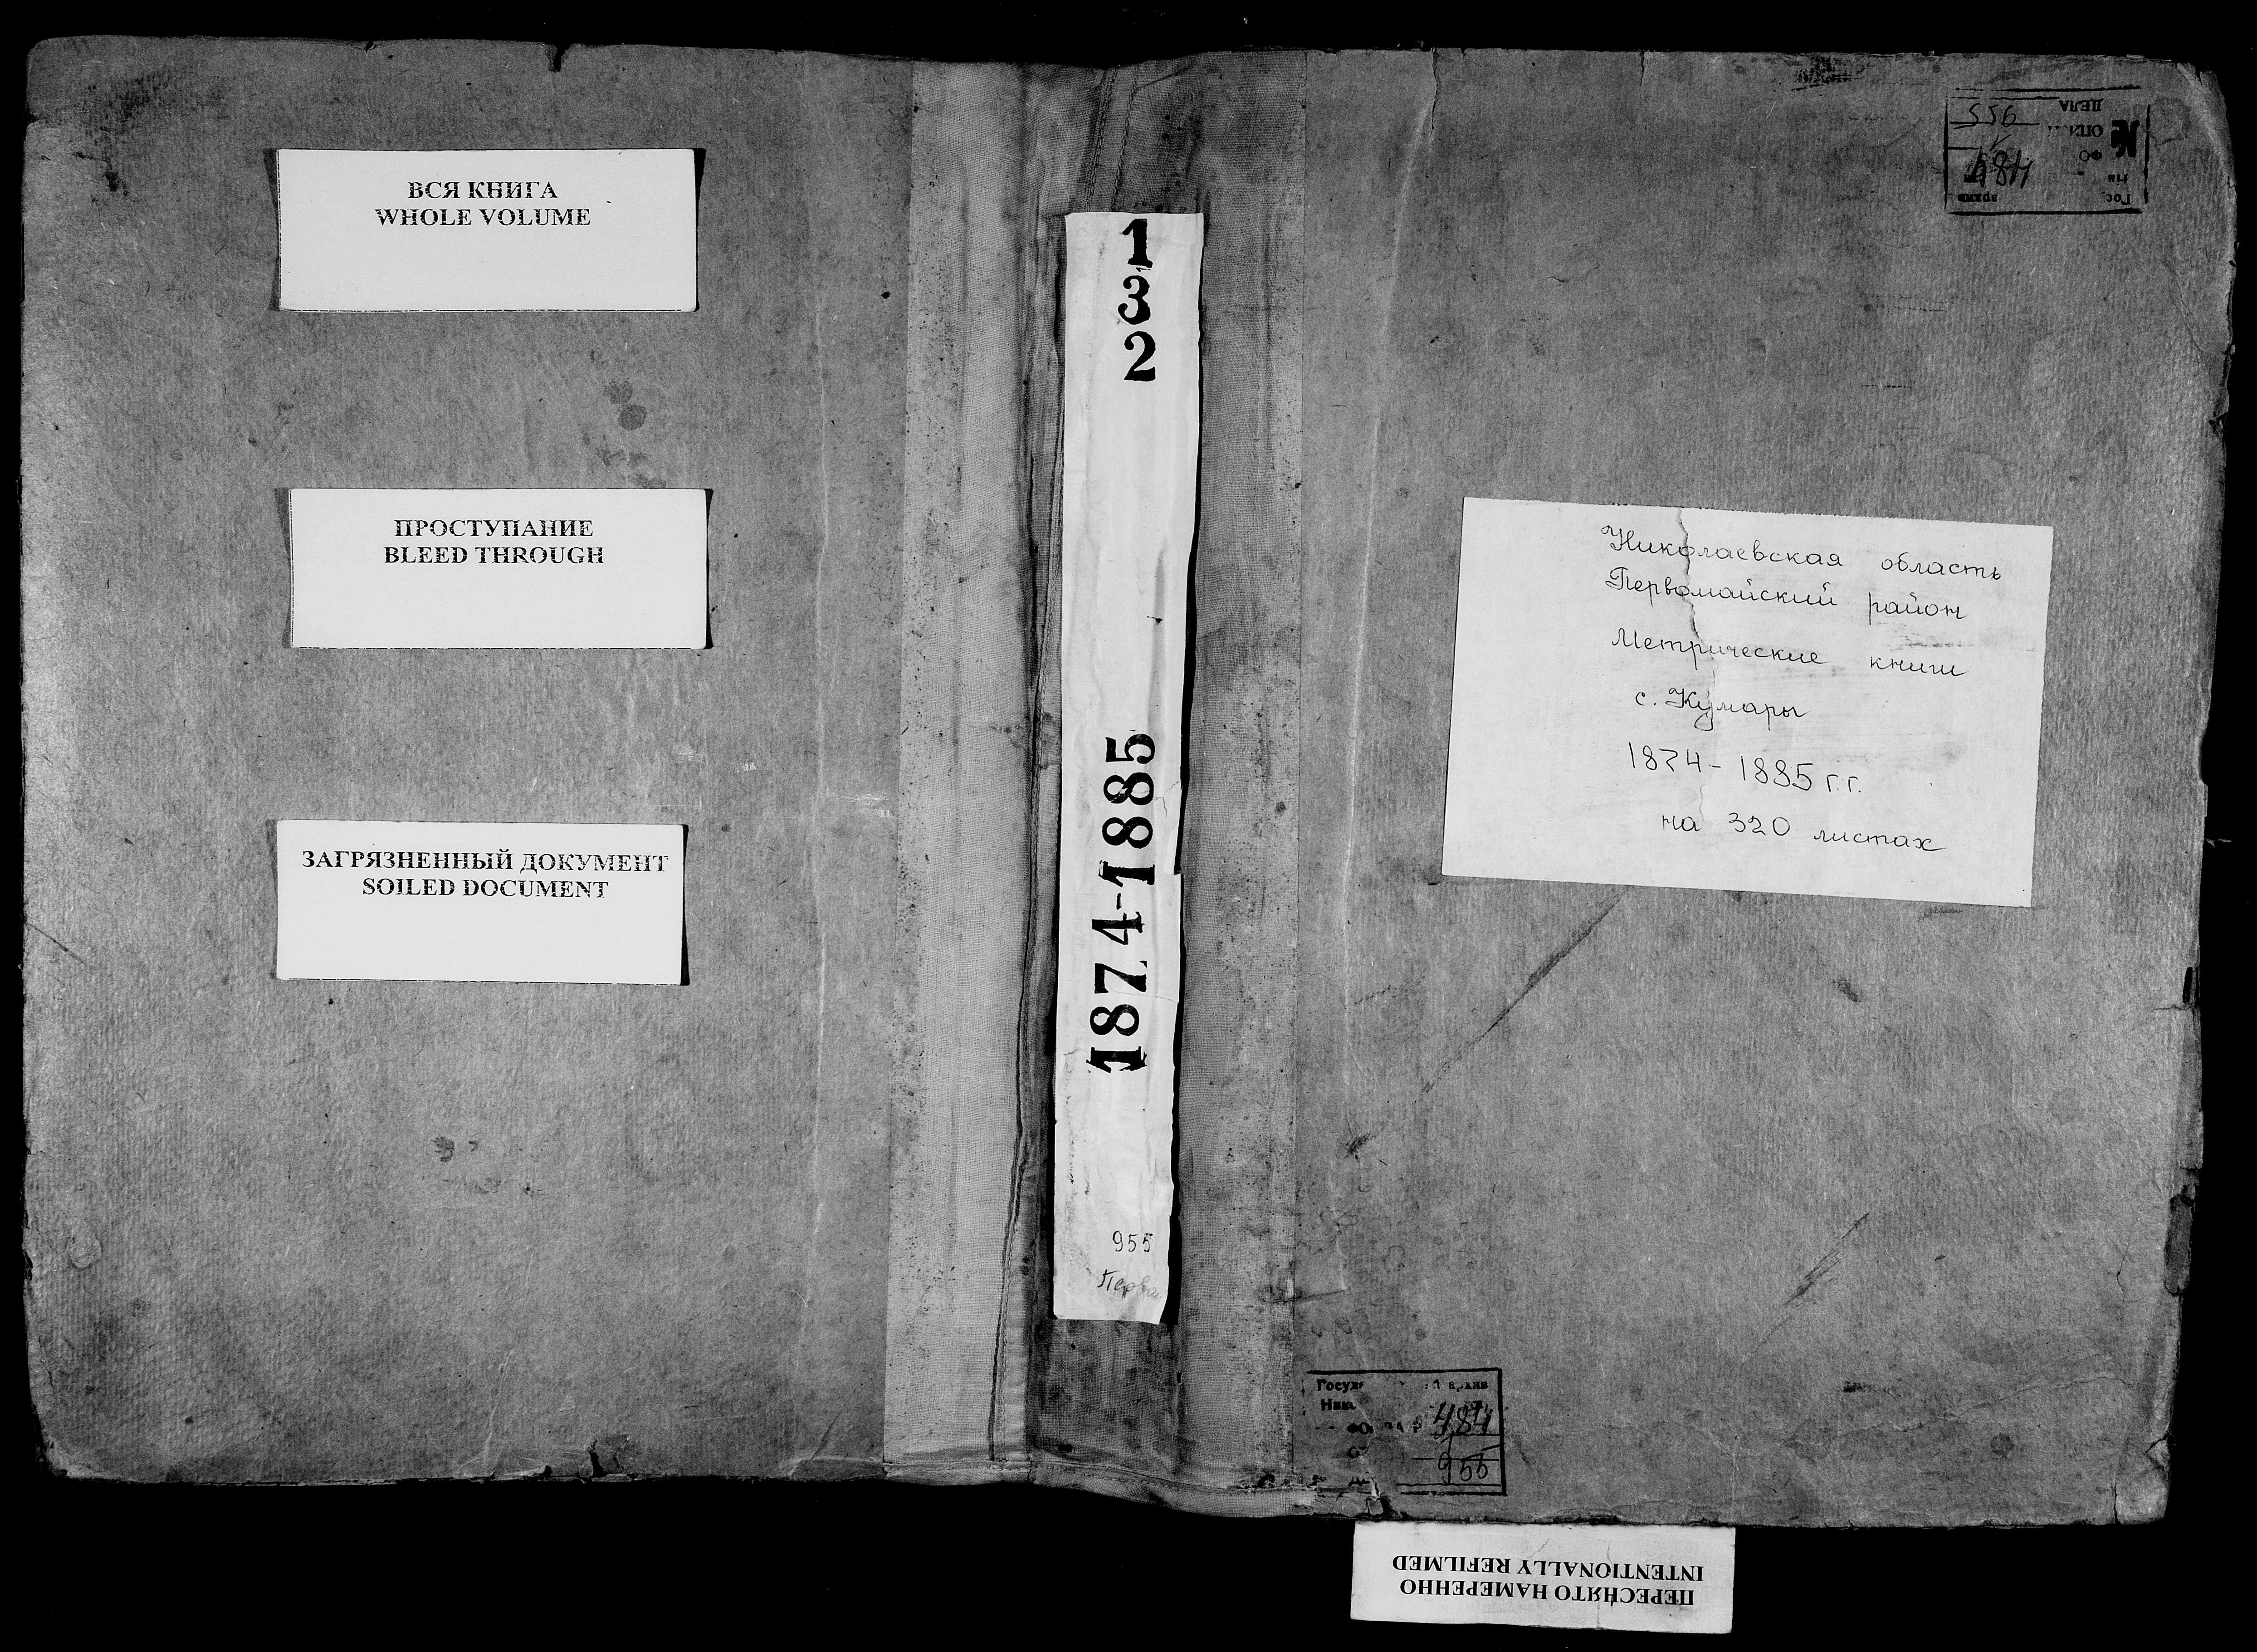 ВСЯ КНИГА
WHOLE VOLUME
ПРОСТУПАНИЕ
BLEED THROUGH
ЗАГРЯЗНЕННЫЙ ДОКУМЕНТ
SOILED DOCUMENT
132
1874-1885
955
ДЕЛА
556
№
484
Гос
архив
Николаевская область
Первомайский район
Метрические книги
с. Кумары
1874-1885 г.г.
на 320 листах
484
955
ПЕРЕСНЯТО НАМЕРЕННО
INTENTIONALLY REFILMED